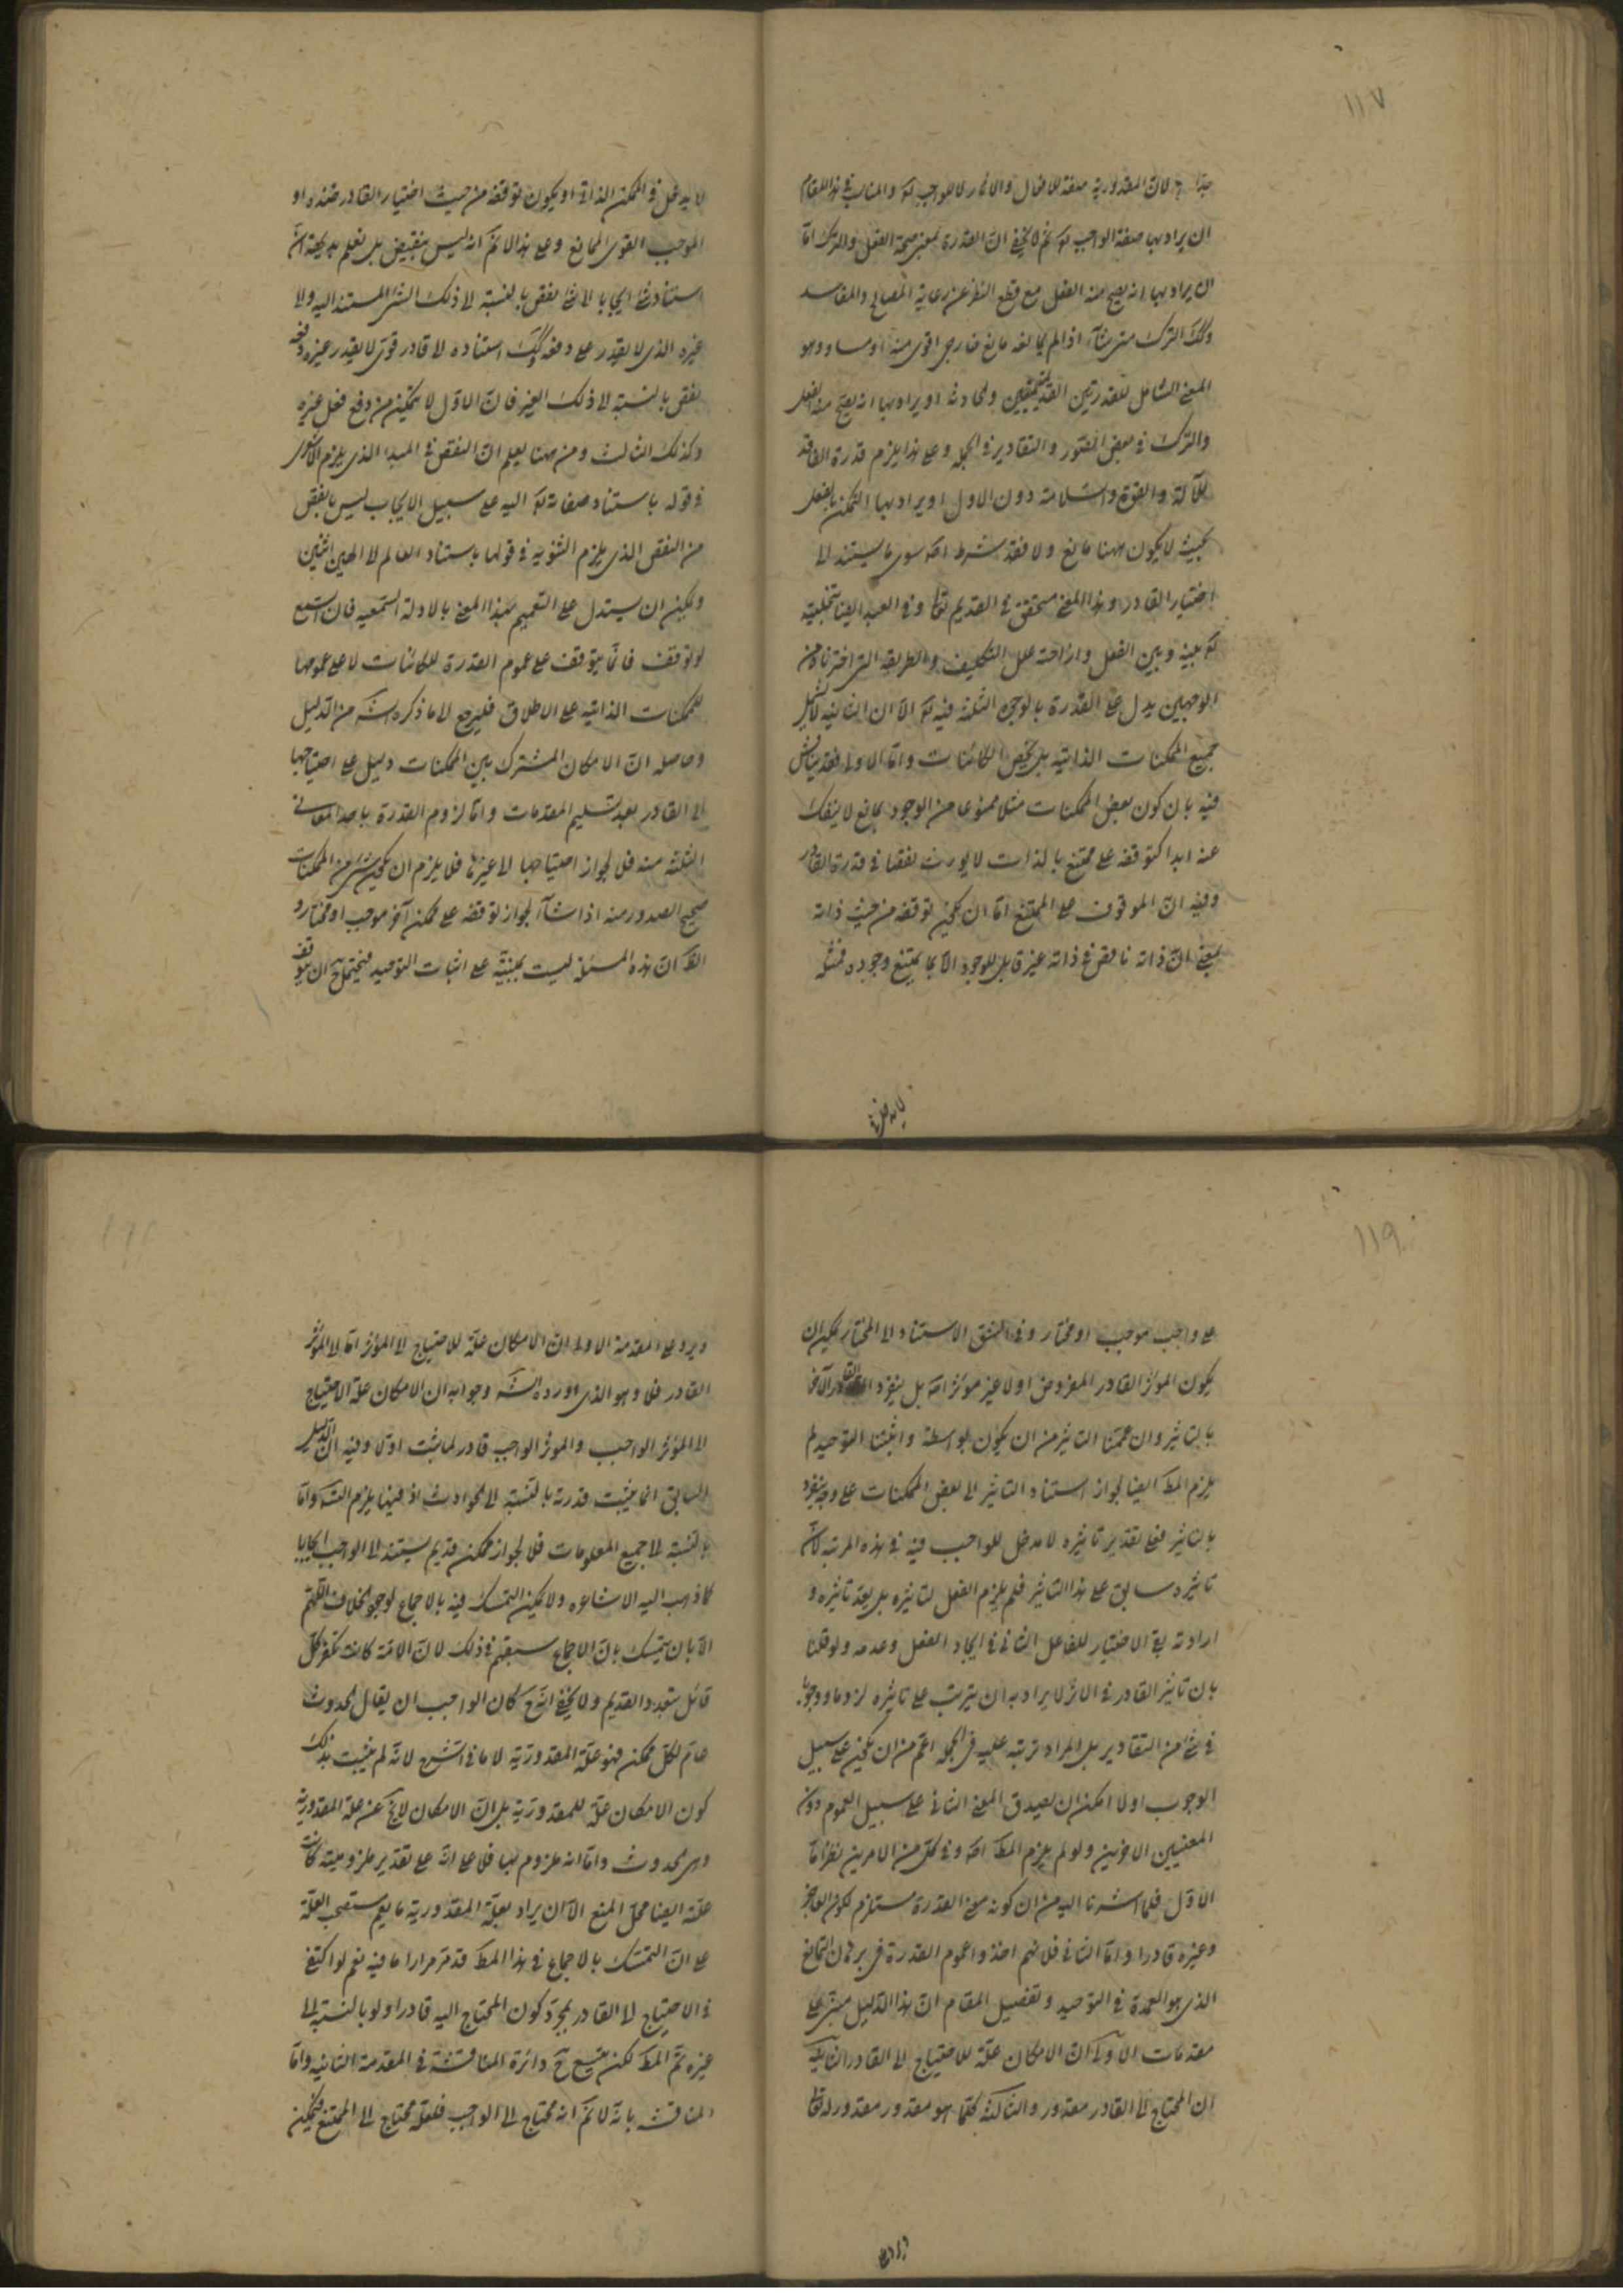 ١١٧
لان المقدورية صفة للافعال والاثار لا للواجب تع والمناسب في هذا المقام
ان يراد بها صفة الواجب تع ثم لا يخفى ان القدرة بمعنى صحة الفعل والترك اما
ان يراد بها انه يصح منه الفعل مع قطع النظر عن رعاية المصالح والمفاسد
وكك الترك متى شاء اذا لم يمانعه مانع خارجى اقوى منه او مساو وهو
المعنى الشامل للقدرتين القديمة والحادثة او يراد بها انه يصح منه الفعل
والترك في بعض الصور والتقادير في الجملة وعلى هذا يلزم قدرة الفاقد
للآلة والقوة والسلامة دون الاول او يراد بها التمكن بالفعل
بحيث لا يكون ههنا مانع ولا فقد شرط اصلا سوى ما يستند الى
اختيار القادر وهذا المعنى متحقق في القديم تعالى وفي العبد ايضا بتخليته
تع بينه وبين الفعل وازاحته علل التكليف والطريقة التي اخترناه من
الوجهين يدل على القدرة بالوجوه الثلثة فيه تع الا ان الثانية لا يشمل
جميع الممكنات الذاتية بل يخص الكائنات واما الاولى فقد يناقش
فيه بان كون بعض الممكنات مثلا ممنوعا من الوجود بمانع لا ينفك
عنه ابدا كتوقفه على ممتنع بالذات لا يورث نقصا في قدرة القادر
وفيه ان الموقوف على الممتنع اما ان يكون توقفه من حيث ذاته
بمعنى ان ذاته ناقص في ذاته غير قابل للوجود الا بما يمتنع وجوده فمثله
لا يدخل في
لا يدخل في الممكن الذاتى او يكون توقفه من حيث اختيار القادر ضده او
الموجب القوى المانع وعلى هذا لا نم انه ليس بنقيض بل نعلم بديهة ان
استناد شئ ايجابا لا شئ نقص بالنسبة الى ذلك الشئ المستند اليه ولا
غيره الذى لا يقدر على دفعه وكك استناده الى قادر قوى لا يقدر غيره دفعه
نقص بالنسبة الى ذلك الغير فان الاول لا يتمكن من دفع فعل غيره
وكذلك الثالث ومن ههنا يعلم ان النقص في المبدا الذى يلزم الاشعرى
في قوله باستناد صفاته تع اليه على سبيل الايجاب ليس بانقص
من النقص الذى يلزم الثنويه في قولها باستناد العالم الى الهين اثنين
ويمكن ان يستدل على التعميم بهذا المعنى بالادلة السمعيه فان السمع
لو توقف فانما يتوقف على عموم القدرة للكائنات لا على عمومها
للممكنات الذاتيه على الاطلاق فليرجع الى ما ذكره الش من الدليل
وحاصله ان الامكان المشترك بين الممكنات دليل على احتياجها
الى القادر بعد تسليم المقدمات واما لزوم القدرة باحد المعانى
الثلثة منه فلا لجواز احتياجها الى غيرها فلا يلزم ان يكون شئ من الممكنات
صحيح الصدور منه اذا شاء لجواز توقفه على ممكن آخر موجب او مختار و
الظ ان هذه المسئلة ليست مبنية على اثبات التوحيد فيحتمل ح ان يتوقف
١١٩
على واجب موجب او مختار وفي الشق الاستناد الى المختار يمكن ان
يكون المؤثر القادر المفروض اولا غير مؤثر اصلا بل ينفرد القادر الآخر
بالتاثير وان عممنا التاثير من ان يكون بواسطة واثبتنا التوحيد لم
يلزم المط ايضا لجواز استناد التاثير الى بعض الممكنات على وجه ينفرد
بالتاثير فعلى تقدير تاثيره لا مدخل للواجب فيه في هذه المرتبة لان
تاثيره سابق على هذا التاثير فلم يلزم الفعل لتاثيره بل بعد تاثيره و
ارادته بقى الاختيار للفاعل الثانى في ايجاد الفعل وعدمه ولو قلنا
بان تاثير القادر في الاثر لا يراد به ان يترتب على تاثيره لزوما ووجوبا
في شئ من التقادير بل المراد ترتبه عليه في الجملة اعم من ان يكون على سبيل
الوجوب او لا امكن ان يصدق المعنى الثانى على سبيل العموم دون
المعنيين الاخرين ولو لم يلزم المط اصلا وفي كل من الامرين نظر اما
الاول فلما اشرنا اليه من ان كونه معنى القدرة مستلزم لكون العاجز
وغيره قادرا واما الثانى فلانهم اخذوا عموم القدرة في برهان التمانع
الذى هو العمدة في التوحيد وتفصيل المقام ان هذا الدليل مبنى على
مقدمات الاولى ان الامكان علة للاحتياج الى القادر الثانية
ان المحتاج الى القادر مقدور والثالثة كلما هو مقدور مقدور له تعالى
ويرد على
ويرد على المقدمة الاولى ان الامكان علة للاحتياج الى المؤثر اما الى المؤثر
القادر فلا وهو الذى اورده الش وجوابه ان الامكان علة الاحتياج
الى المؤثر الواجب والمؤثر الواجب قادر لما ثبت اولا وفيه ان الدليل
السابق انما يثبت قدرته بالنسبة الى الحوادث اذ فيها يلزم التس واما
بالنسبة الى جميع المعلومات فلا لجواز ممكن قديم يستند الى الواجب ايجابا
كما ذهب اليه الاشاعره ولا يمكن التمسك فيه بالاجماع لوجود خلافهم
الا بان يتمسك بان الاجماع سبقهم في ذلك لان الائمة كانت تكفر كل
قائل بتعدد القديم ولا يخفى انه ح كان الواجب ان يقال الحدوث
عام لكل ممكن فهو علة المقدورية لا ما في الشرح لانه لم يثبت بذلك
كون الامكان علة للمقدورية بل ان الامكان لا يخ عن علة المقدورية
وهى الحدوث واما انه ملزوم لها فلا على انه على تقدير ملزوميته كانت
علته ايضا محل المنع الا ان يراد بعلة المقدورية ما يعم مستصحب العلة
على ان التمسك بالاجماع في هذا المط قد مر مرارا ما فيه نعم لو اكتفى
في الاحتياج الى القادر بمجرد كون المحتاج اليه قادرا ولو بالنسبة الى
غيره تم المط لكن يتسع ح دائرة المناقشة في المقدمة الثانيه واما
المناقشه بانه لا نم انه محتاج الى الواجب فلعله محتاج الى الممتنع فيمكن